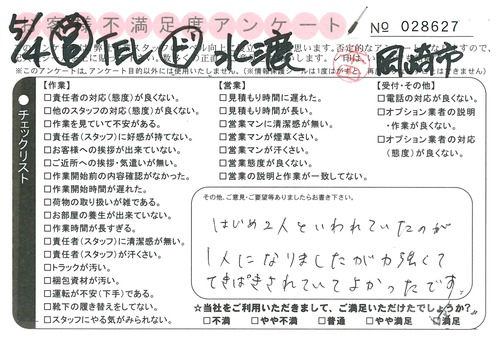 お客様不満足度アンケート
No 028627
5/4 TEL
岡崎市
チェックリスト
【作業】
□責任者の対応(態度)が良くない。
□他のスタッフの対応(態度)が良くない。
□作業が見ていて不安がある。
□責任者(スタッフ)に好感が持てない。
□お客様への挨拶が出来ていない。
□ご近所への挨拶・気遣いが無い。
□作業開始前の内容確認がなかった。
□作業開始時間が遅れた。
□荷物の取り扱いが雑である。
□お部屋の養生が出来ていない。
□作業時間が長すぎる。
□責任者(スタッフ)に清潔感が無い。
□責任者(スタッフ)が汗くさい。
□トラックが汚い。
□梱包資材が汚い。
□運転が不安(下手)である。
□靴下の履き替えをしてない。
□スタッフにやる気がみられない。
【営業】
□見積もり時間に遅れた。
□見積もり時間が長い。
□営業マンに清潔感が無い。
□営業マンが煙草くさい。
□営業マンが汗くさい。
□営業態度が良くない。
□営業の説明と作業が一致してない。
【受付・その他】
□電話の対応が良くない。
□オプション業者の説明
・作業が良くない。
□オプション業者の対応
(態度)が良くない。
その他、ご意見・ご要望等ありましたらお書き下さい。
はじめ2人といわれていたのが
1人になりましたが力強くて
てきぱきされていてよかったです。
☆当社をご利用いただきまして、ご満足いただけたでしょうか?
□不満 □やや不満 □普通 □やや満足 □満足